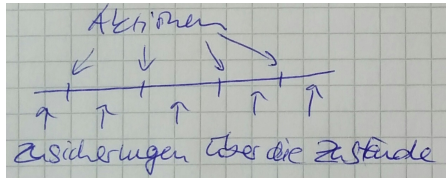 Aktionen
Zusicherungen über die Zustände